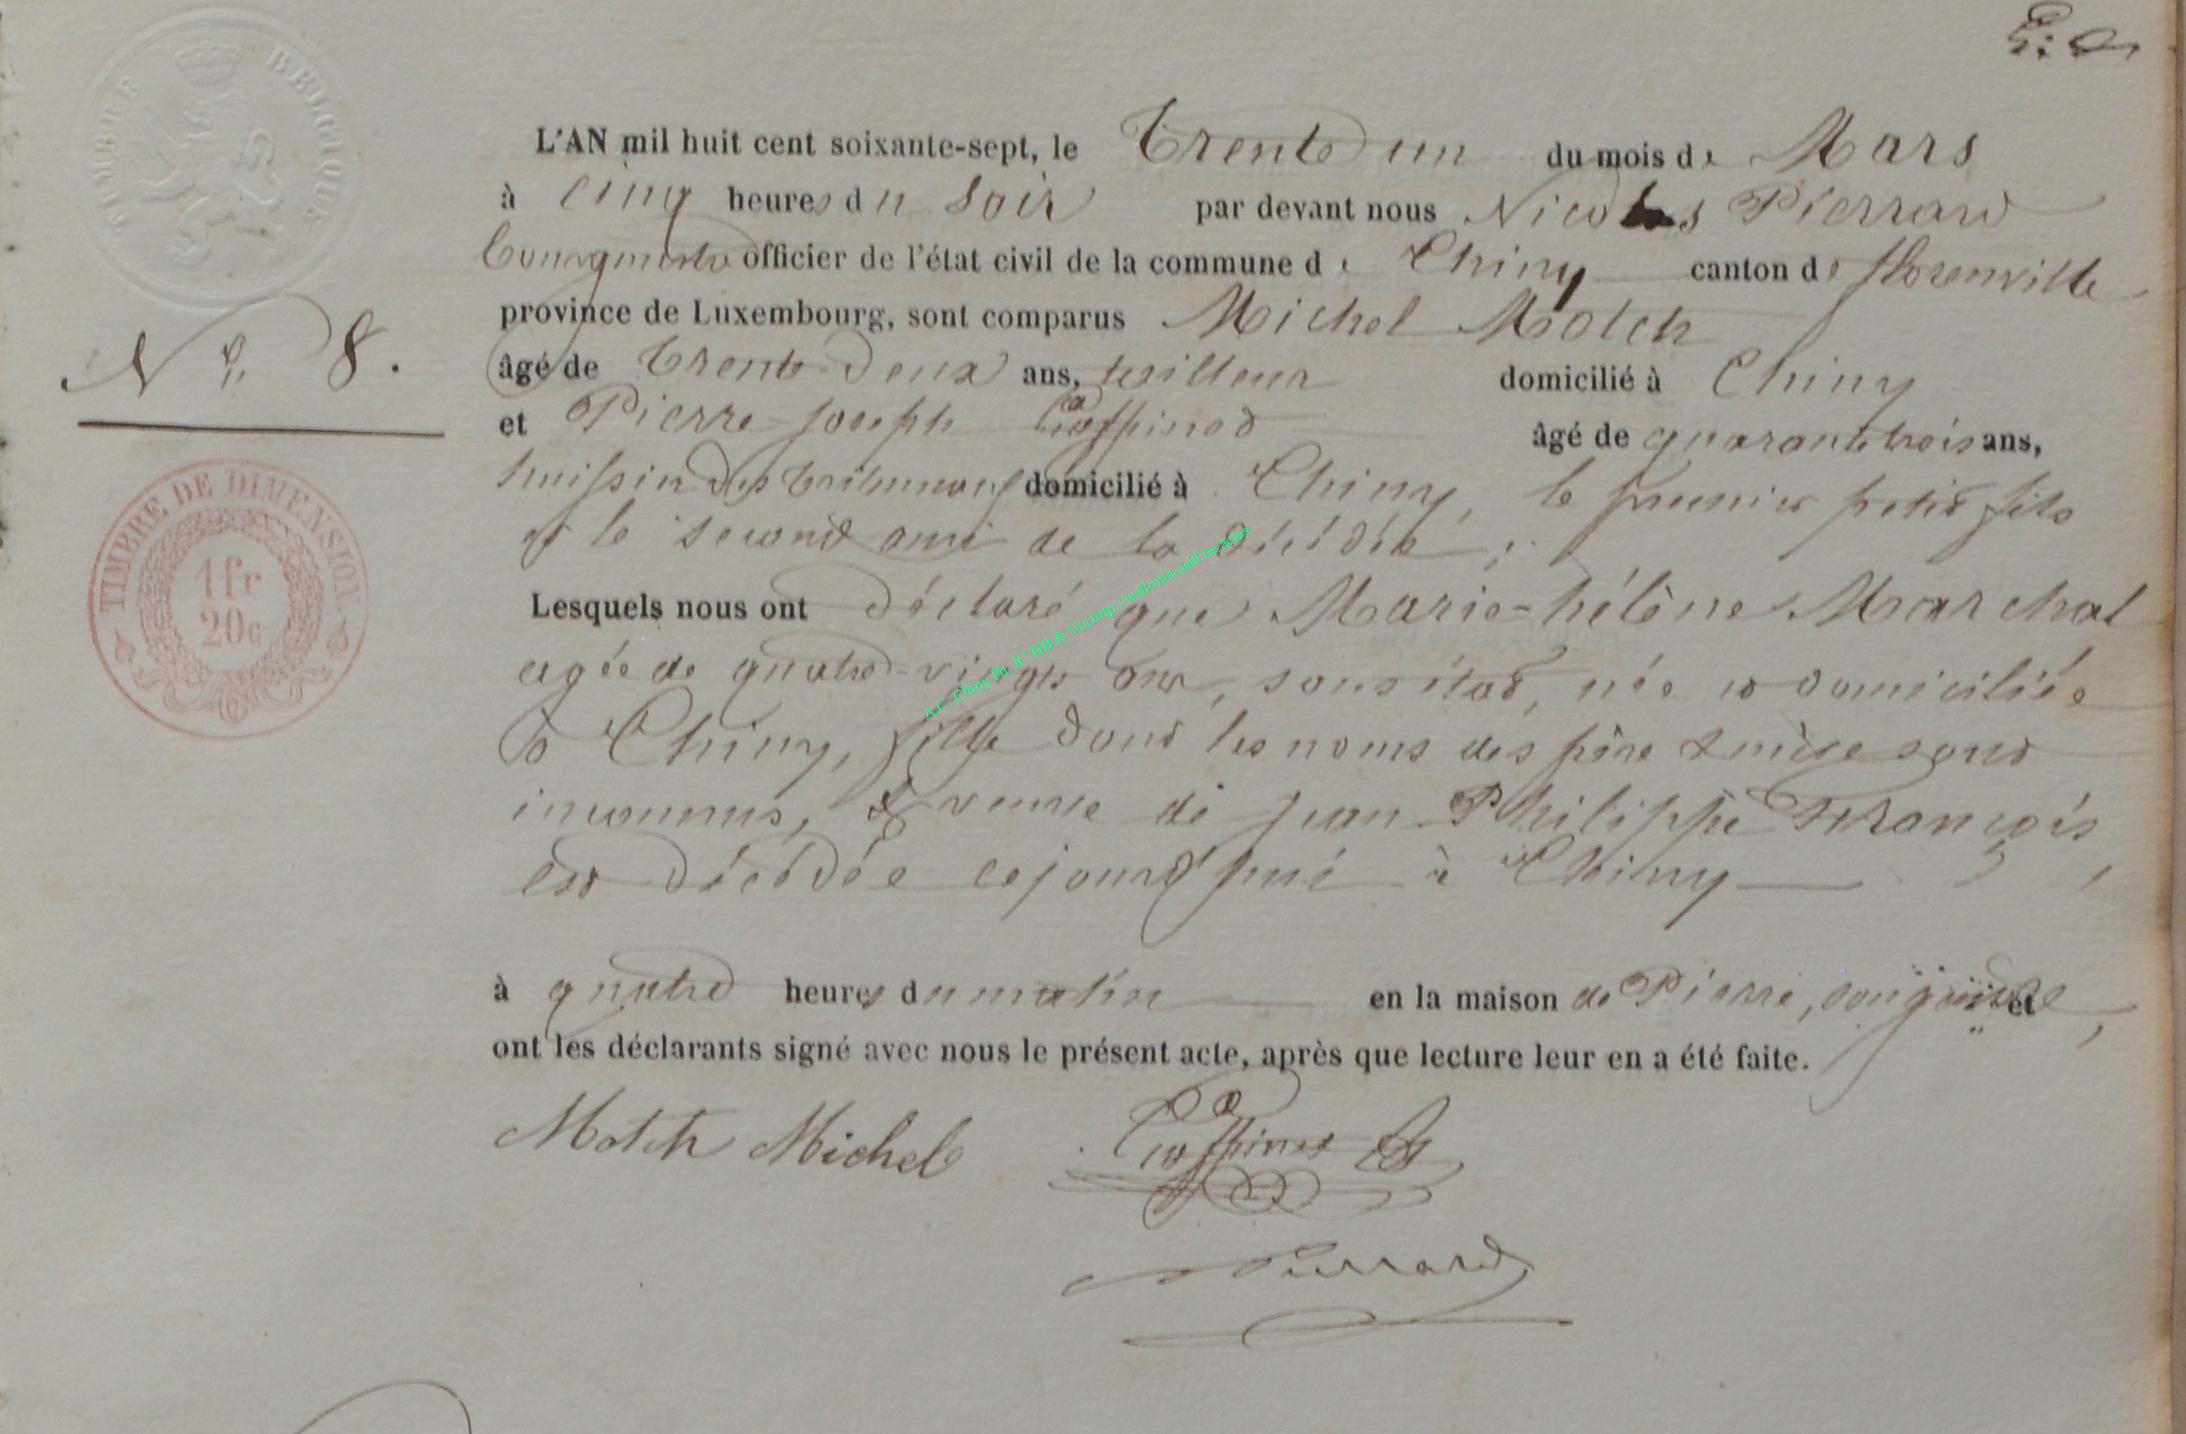 TIMBRE BELGIQUE
L'AN mil huit cent soixante-sept, le Trente un du mois de Mars
à cinq heures du soir par devant nous Nicolas Pierrard
bourgmestre officier de l'état civil de la commune de Chiny canton de florenville
province de Luxembourg, sont comparus Michel Motch
N° 8.
âgé de trente-deux ans, tailleur domicilié à Chiny
et Pierre-Joseph âgé de quarante trois ans,
huissier des tribunaux domicilié à Chiny, le premier petit fils
et le second ami de la décédée,
TIMBRE DE DIMENSION
1 fr
20c
Lesquels nous ont déclaré que Marie-hélène Marchal
agée de quatre-vingts ans, sans état, née et domiciliée
à Chiny, fille dont les noms des père & mère sont
inconnus, & veuve de Jean Philippe François,
est décédée cejourd'hui à Chiny
à quatre heures du matin en la maison de Pierre, son gendre et
ont les déclarants signé avec nous le présent acte, après que lecture leur en a été faite.
Motch Michel
Pierrard
A.C. Chiny Ph. JC.HB ® Via http://wallonia-asbl.be/actes